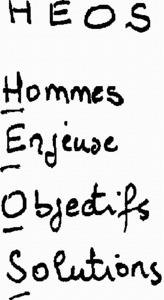 HEOS
Hommes
Enjeuse
Objectifs
Solutions